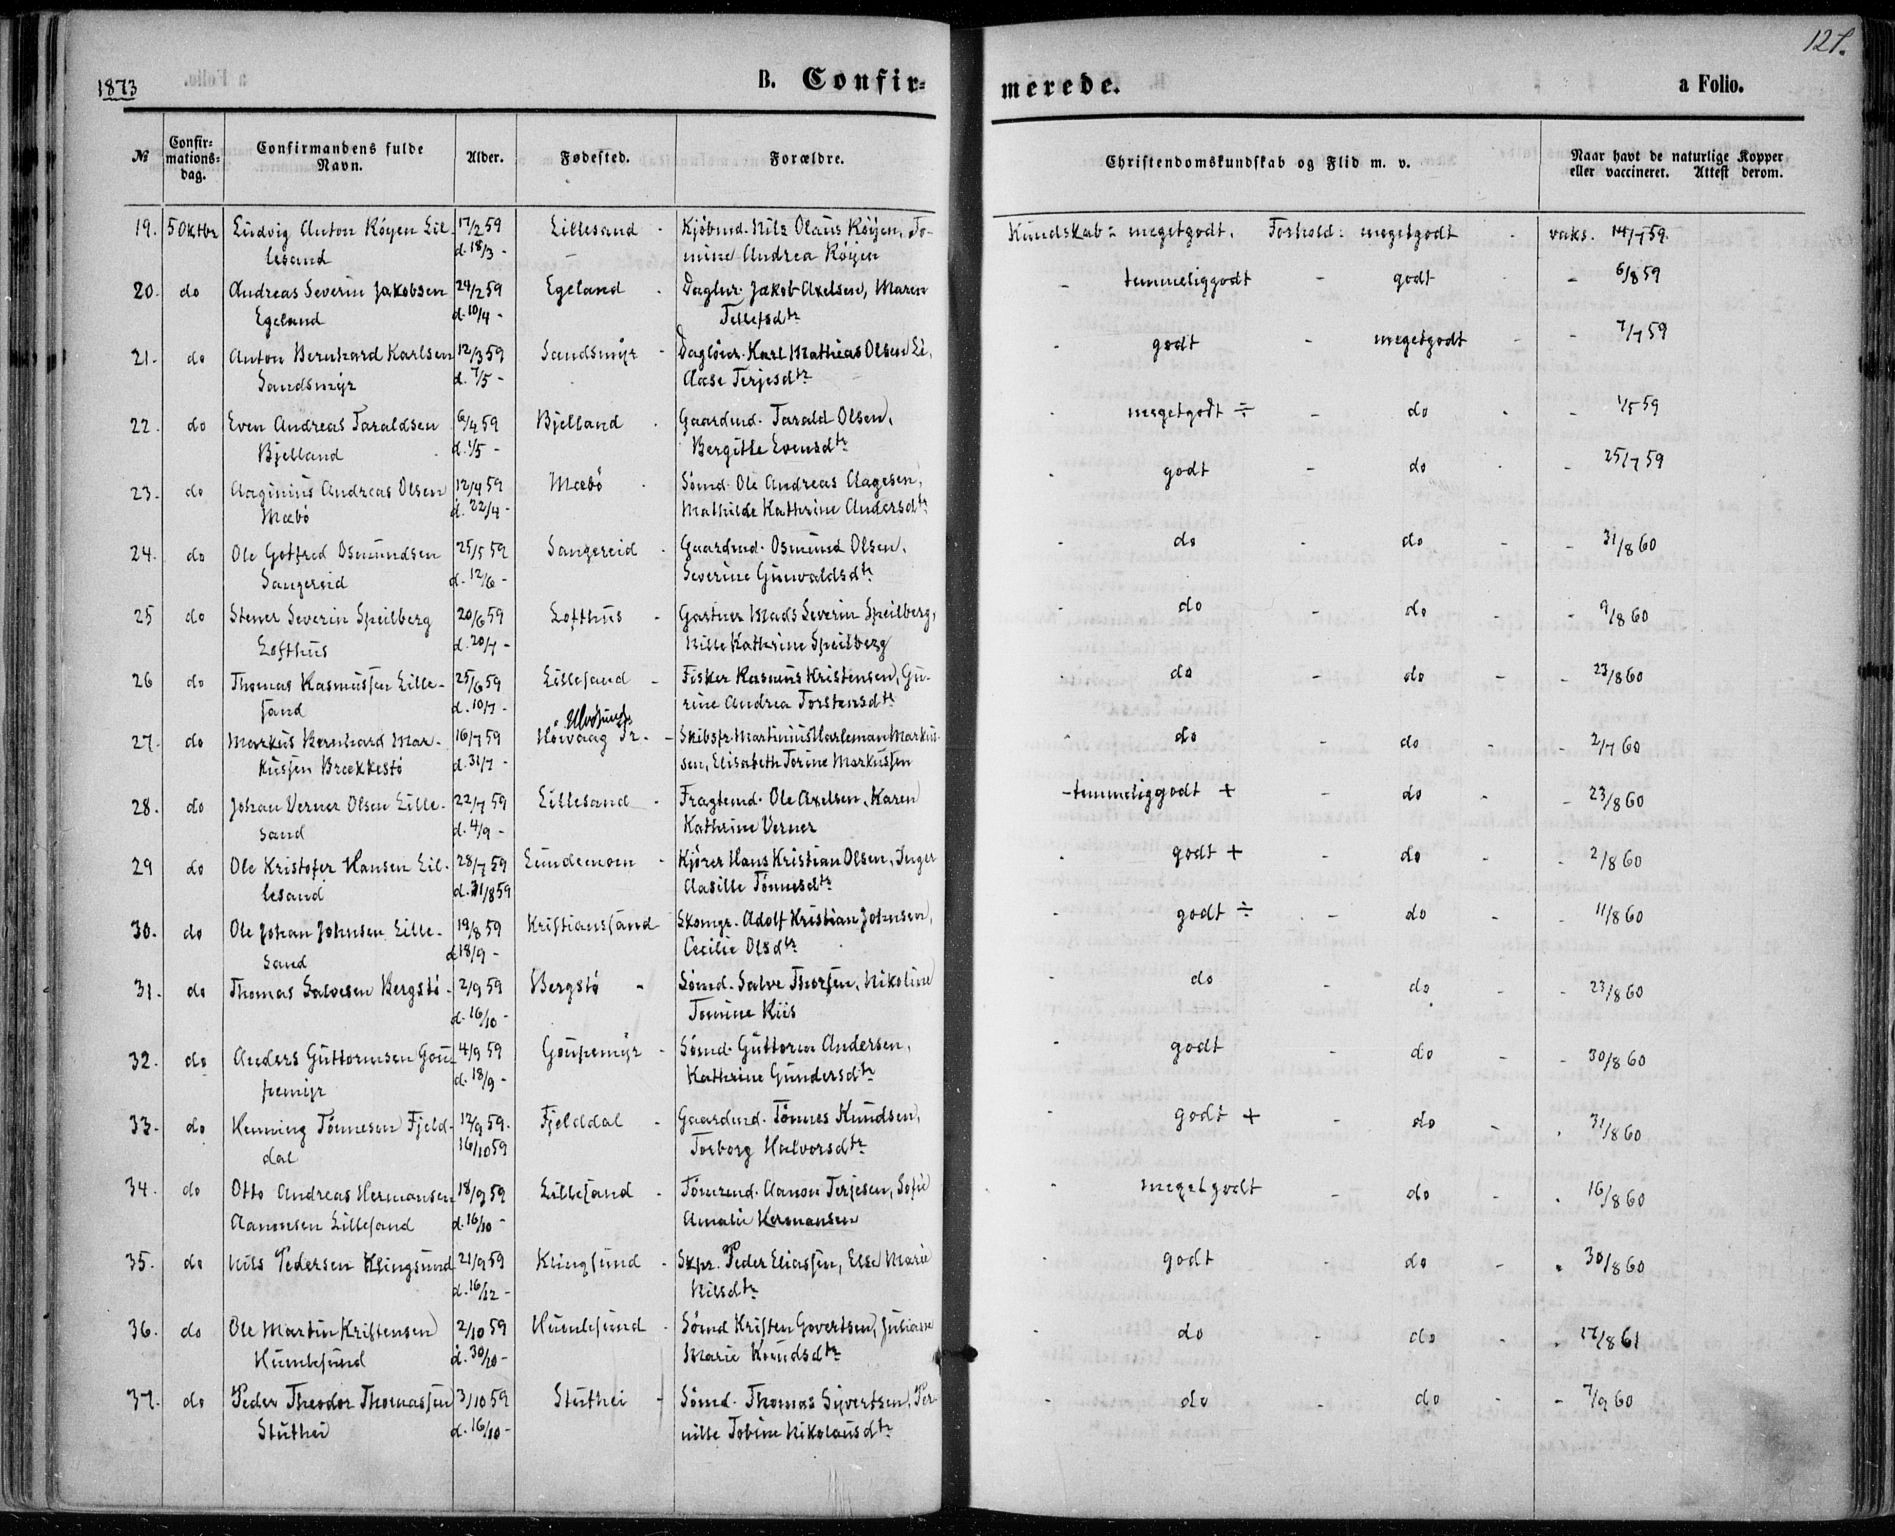 127.
1873
B. Confir-
merede.
a Folio.
№
Confir-
mations-
dag.
Confirmandens fulde
Navn.
Alder.
Fødested.
Forældre.
Christendomskundskab og Flid m. v.
Naar havt de naturlige Kopper
eller vaccineret. Attest derom.
19. 5 Oktbr Ludvig Anton Røyen Lil- 17/2 59 Lillesand - Kjøbmd. Nils Olaus Røyen, To- Kundskab: megetgodt. Forhold: megetgodt - vaks. 14/7 59.
lesand d. 18/3 - mine Andrea Røyen
20. do Andreas Severin Jakobsen 24/2 59 Egeland - Dagln. Jakob Axelsen, Maren - temmeliggodt - godt - 6/8 59
Egeland d. 10/4 - Tellefsdtr
21. do Anton Bernhard Karlsen 12/3 59 Sandsmyr - Dagløn. Karl Mathias Olsen - godt - megetgodt - - 7/7 59
Sandsmyr d. 7/5 - Aase Terjesdtr
22. do Even Andreas Taraldsen 6/4 59 Bjelland - Gaardmd. Tarald Olsen, - megetgodt ÷ - do - - 1/5 59
Bjelland d. 1/5 - Bergitte Evensdtr
23. do Aaginius Andreas Olsen 12/4 59 Mæbø - Sømd. Ole Andreas Aagesen, - godt - do - - 25/7 59
Mæbø d. 22/4 - Mathilde Kathrine Andersdtr
24. do Ole Gotfred Osmundsen 25/5 59 Sangereid - Gaardmd. Osmund Olsen, - do - do - - 31/8 60
Sangereid d. 12/6 - Severine Gunvaldsdtr
25 do Stener Severin Speilberg 20/6 59 Lofthus - Gartner Mads Severin Speilberg, - do - do - - 9/8 60
Lofthus d. 20/7 - Nille Kathrine Speilberg
26 do Thomas Rasmussen Lille- 25/6 59 Lillesand - Fisker Rasmus Kristensen, Gu- - do - do - - 23/8 60
sand d. 10/7 - rine Andrea Torstensdtr
Ulvøsund
27. do Markus Bernhard Mar- 16/7 59 Høivaag Pr. - Skibsfr. Martinius Harleman Markus- - do - do - - 2/7 60
kussen Brækkestø d. 31/7 - sen, Elisabeth Torine Markussen
28. do Johan Verner Olsen Lille- 22/7 59 Lillesand - Fragtemd. Ole Axelsen, Karen - temmeliggodt + - do - - 23/8 60
sand d. 4/9 - Kathrine Verner
29 do Ole Kristofer Hansen Lil- 28/7 59 Lundemoen - Kjører Hans Kristian Olsen, Inger - godt + - do - - 2/8 60
lesand d. 21/8 59 Aasille Tønnesdtr
30. do Ole Johan Johnsen Lille- 19/8 59 Kristianssand Skomgr. Adolf Kristian Johnsen, - godt ÷ - do - - 11/8 60
sand d 18/9 - Cecilie Olsdtr
31. do Thomas Salvesen Bergstø - 2/9 59 Bergstø - Sømd. Salve Thorsen, Nikoline - do - do - - 23/8 60
d. 16/10 - Tomine Kiis
32. do Anders Guttormsen Gau- 4/9 59 Gaupemyr - Sømd. Guttorm Andersen, - godt - do - - 30/8 60
pemyr d. 18/9 - Kathrine Gundersdtr
33. do Henning Tønnesen Fjeld- 12/9 59. Fjelddal - Gaardmd. Tønnes Knudsen, - godt + - do - - 31/8 60
dal 16/10 59 Torborg Halvorsdtr
34. do Otto Andreas Hermansen 18/9 59 Lillesand - Tømrmd. Aanon Terjesen, Sofie - megetgodt - do - - 16/8 60
Aanonsen Lillesand d. 16/10 - Amalie Hermansen
35. do Nils Pedersen Klingsund 21/9 59 Klingsund - Skpr. Peder Eliassen, Else Marie - godt - do - - 30/8 60
d. 16/12 - Nilsdtr
36. do Ole Martin Kristensen 2/10 59 Humlesund - Sømd Kristen Govertsen, Juliane - do - do - - 17/8 61
Humlesund d. 30/10 - Marie Knudsdtr
37. do Peder Theodor Thomassen 3/10 59 Stuthei - Sømd. Thomas Sivertsen, Per- - do - do - - 7/9 60
Stuthei d. 16/10 - nille Tobine Nikolausdtr